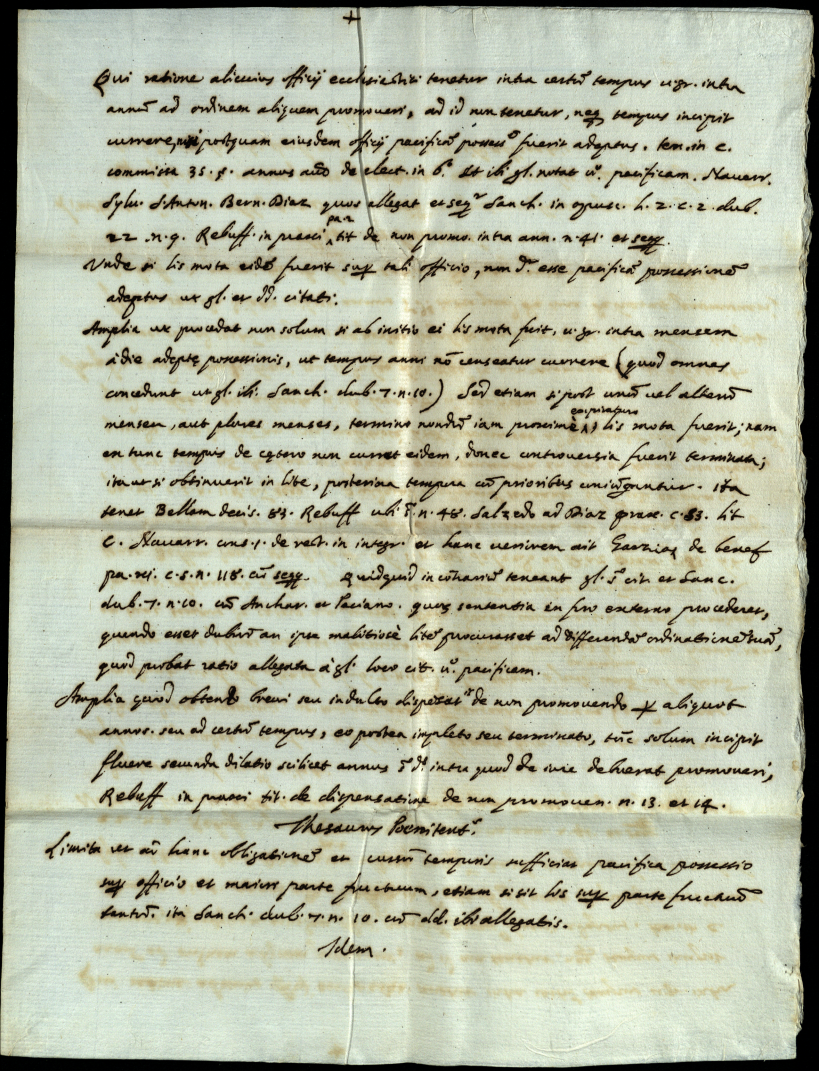 +
Qui ratione alicuius officij ecclesiastici tenetur intra certũ tempus v.gr. intra
annũ ad ordinem aliquem promoveri, ad id non tenetur, neq tempus incipit
currere, nisi postquam eiusdem officij pacificã possess.ẽ fuerit adeptus. tex. in c.
commissa 35. §. annus aũt de elect. in 6.º et ibi gl. notat vº. pacificam. Navarr.
Sylv. S. Anton. Bern. Diaz quos allegat et seqr Sanch. in opusc. l. 2. c. 2. dub.
22. n. 9. Rebuff. in praxi pa. 2 tit de non promo. intra ann. n. 41. et seqq.
Unde si lis mota eidẽ fuerit sup tali officio, non dr. esse pacificã possessionẽ
adeptus ut gl. et dd. citati.
Amplia ut procedat non solum si ab initio ei lis mota fuit, v.gr. intra mensem
a die adeptę possessionis, ut tempus anni nõ censeatur currere (quod omnes
concedunt ut gl. ibi. Sanch. dub. 7. n. 10.) Sed etiam si post unũ vel alterũ
mensem, aut plures menses, termino nondũ iam proximè expiraturo, lis mota fuerit; nam
ex tunc tempus de cętero non curret eidem, donec controversia fuerit terminata;
ita ut si obtinuerit in lite, posteriora tempora cũ prioribus coniũgantur. Ita
tenet Bellam decis. 83. Rebuff ubi s. n. 48. Salzedo ad Diaz prax. c. 83. lit
C. Navarr. cons. 1. de rest. in integr. et hanc veriorem ait Garzias de benef
pa. xi. c. 5. n. 118. cũ seqq. Quidquid in cõtrariũ teneant gl. s. cit. et Sanc.
dub. 7. n. 10. cũ Anchar. et Paciano. quorũ sententia in foro externo procederet,
quando esset dubiũ an ipse malitiosè litẽ procurasset ad differendã ordinationẽ suã,
quod probat ratio allegata à gl. loco cit. vº. pacificam.
Amplia quod obtento brevi seu indulto dispẽsatr de non promovendo p aliquot
annos. seu ad certũ tempus, eo postea impleto seu terminato, tũc solum incipit
fluere secunda dilatio scilicet annus s. ds. intra quod de iure debuerat promoveri,
Rebuff in praxi tit. de dispensatione de non promoven. n. 13. et 14.
Thesaurus Pœnitent.
Limita ut ad hanc obligationẽ et cursũ temporis sufficiat pacifica possessio
sup officio et maiori parte fructuum, etiam si sit lis sup parte fructuũ
tantũ. ita Sanch. dub. 7. n. 10. cũ dd. ibi allegatis.
Idem.